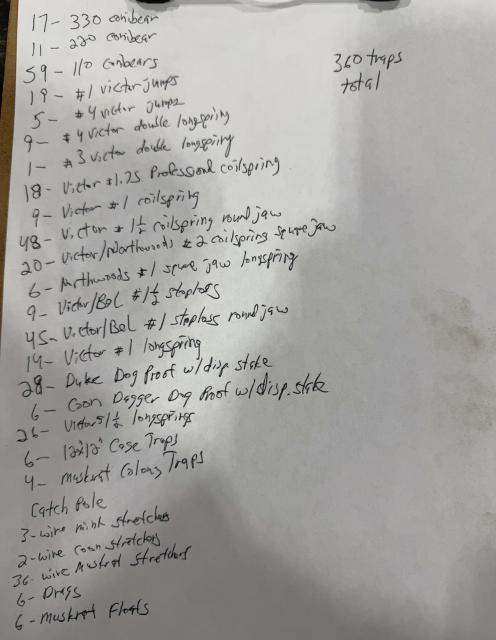 17- 330 conibear
11- 220 conibear
59- 110 conibears
19- #1 victor jumps
5- #4 victor jumps
9- #4 victor double longspring
1- #3 victor double longspring
18- Victor #1.75 Professional coilspring
9- Victor #1 coilspring
48- Victor #1½ coilspring round jaw
20- Victor/Northwoods #2 coilspring square jaw
6- Northwoods #1 square jaw longspring
9- Victor/B&L #1½ stoploss
45- Victor/B&L #1 stoploss round jaw
14- Victor #1 longspring
28- Duke Dog Proof w/disp. stake
6- Coon Dagger Dog Proof w/disp. stake
26- Victor 1½ longsprings
6- 12"x12" Cage Traps
4- Muskrat Colony Traps
Catch Pole
3- wire mink stretchers
2- wire coon stretchers
36- wire Muskrat Stretchers
6- Drags
6- Muskrat Floats
360 traps
total